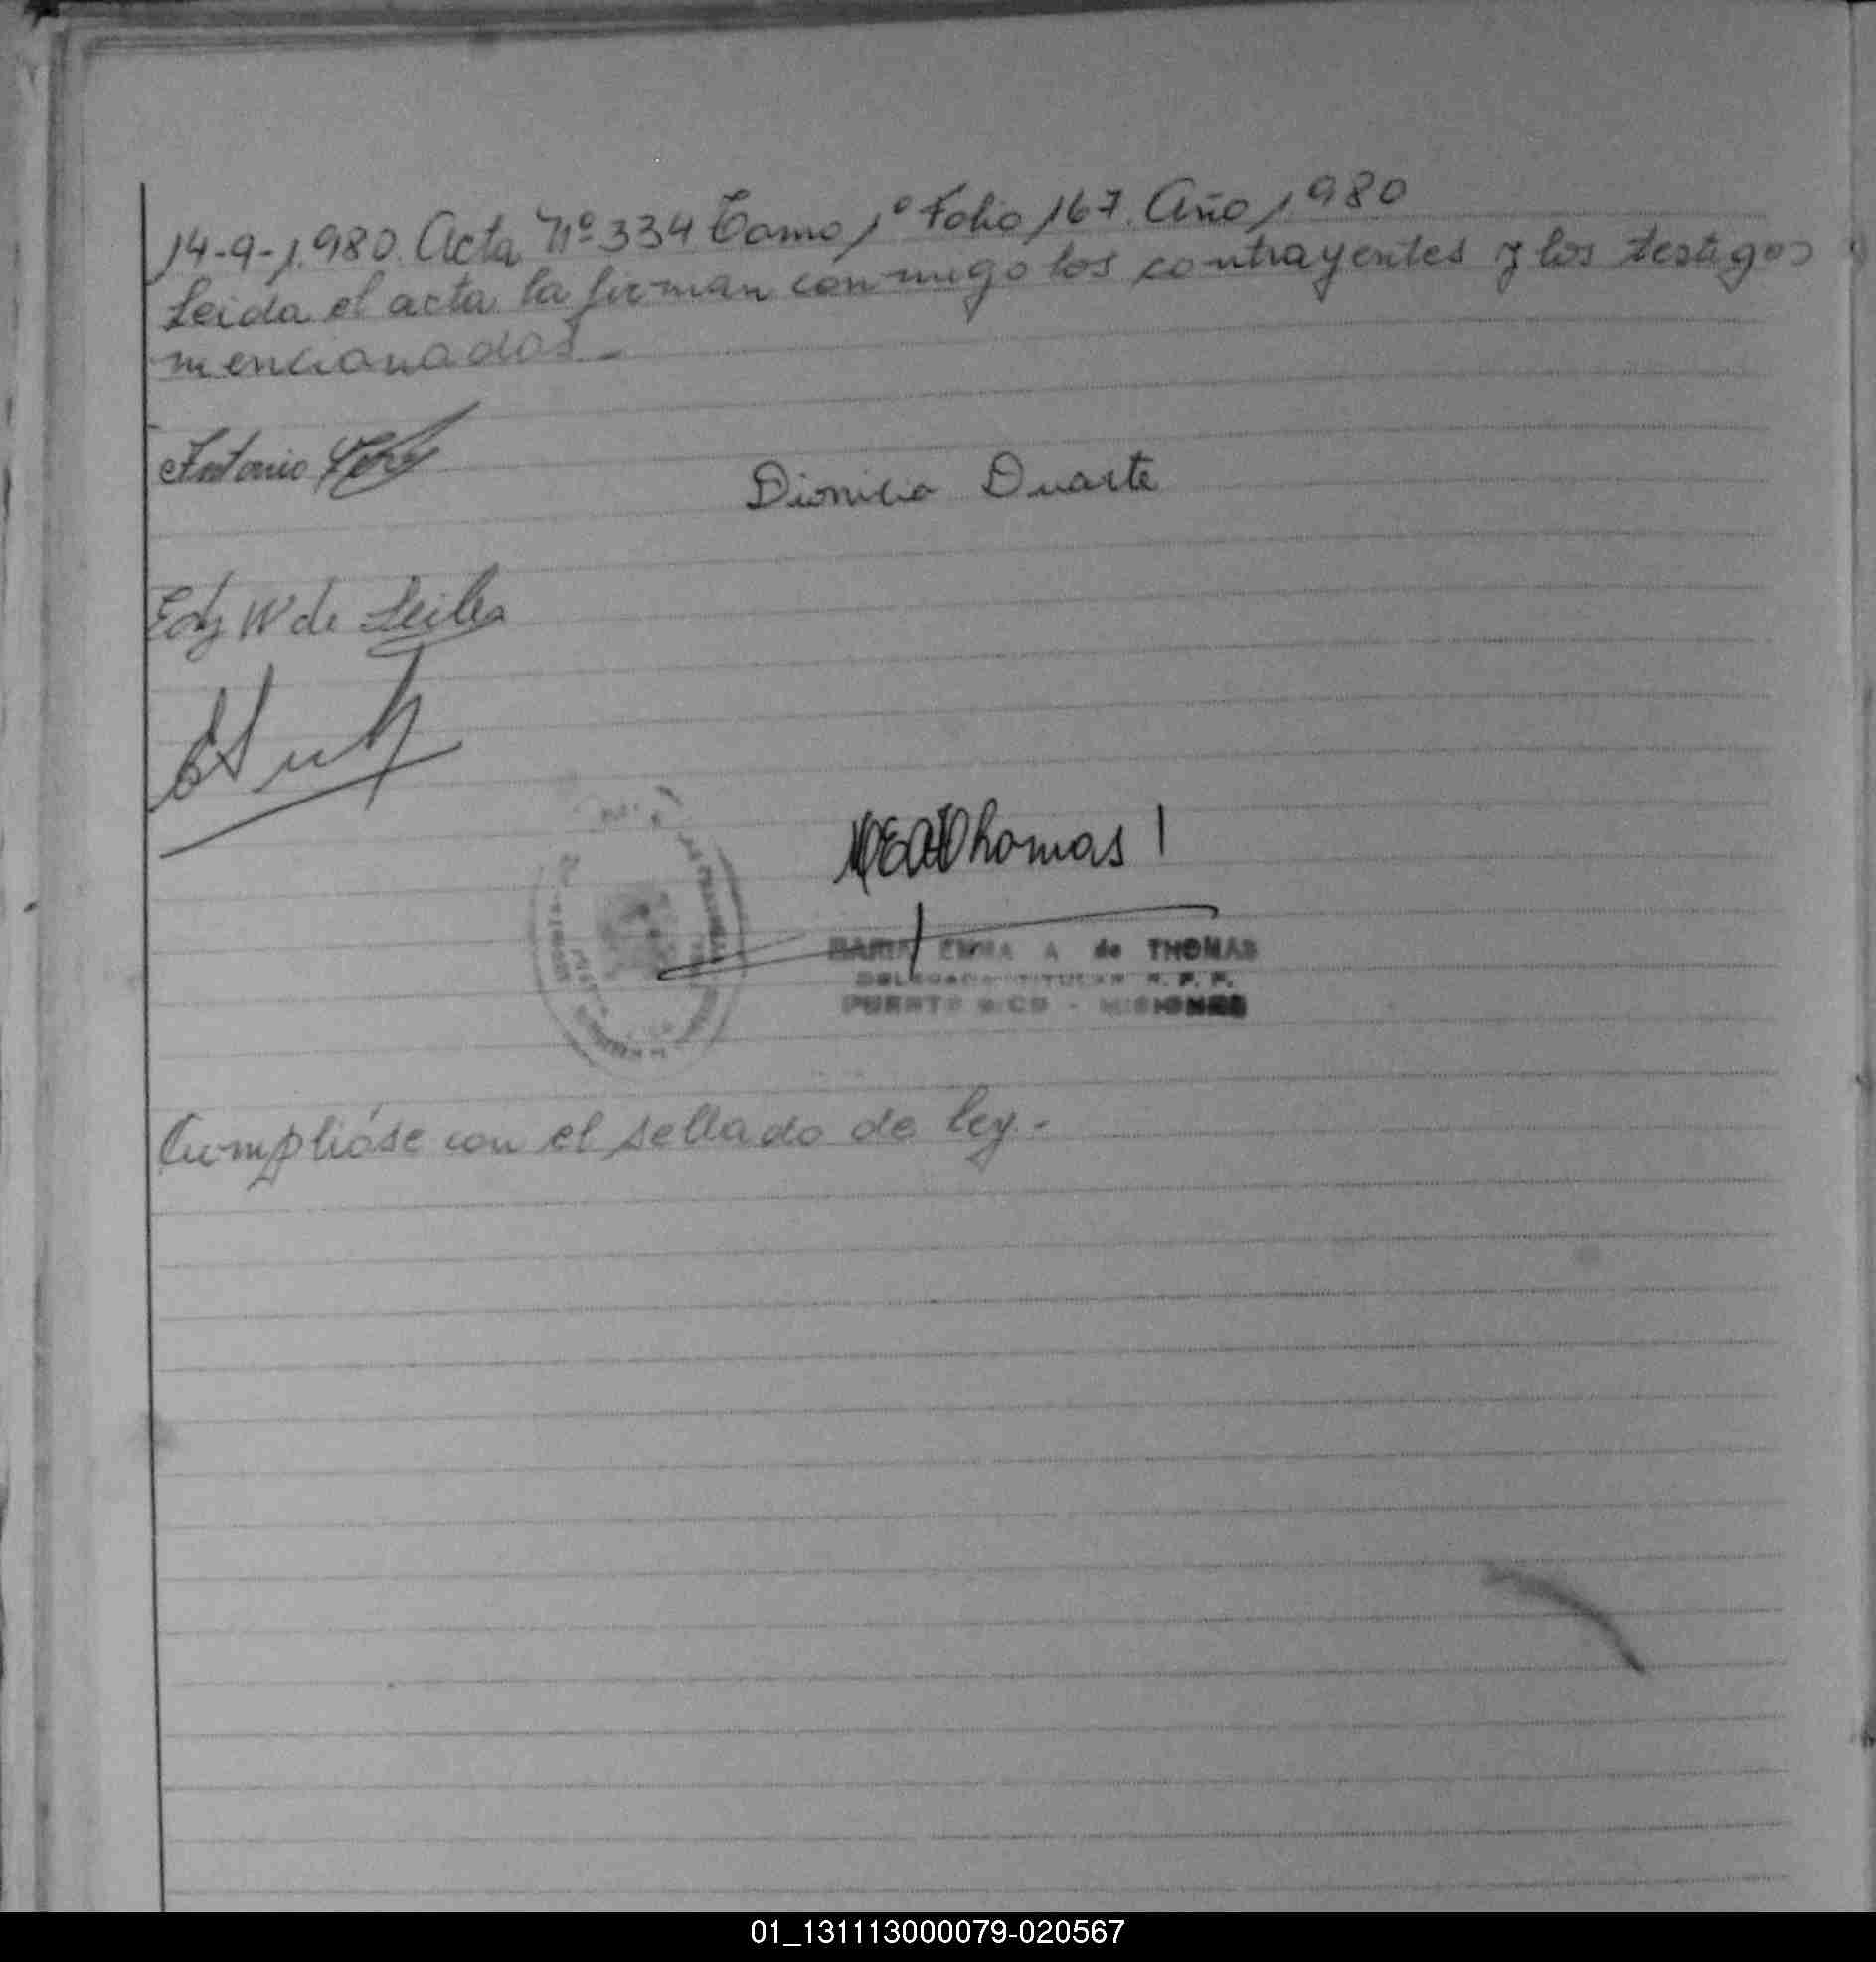 14-9-1.980. Acta Nº 334 Tomo 1º Folio 167. Año 1.980
Leida el acta la firman conmigo los contrayentes y los testigos
mencionados.-
Antonio
Dionicio Duarte
Edy W de
MEAdThomas
MARIA EMMA A de THOMAS
DELEGADA TITULAR R. P. P.
PUERTO RICO - MISIONES
Cumplióse con el sellado de ley.-
01_131113000079-020567